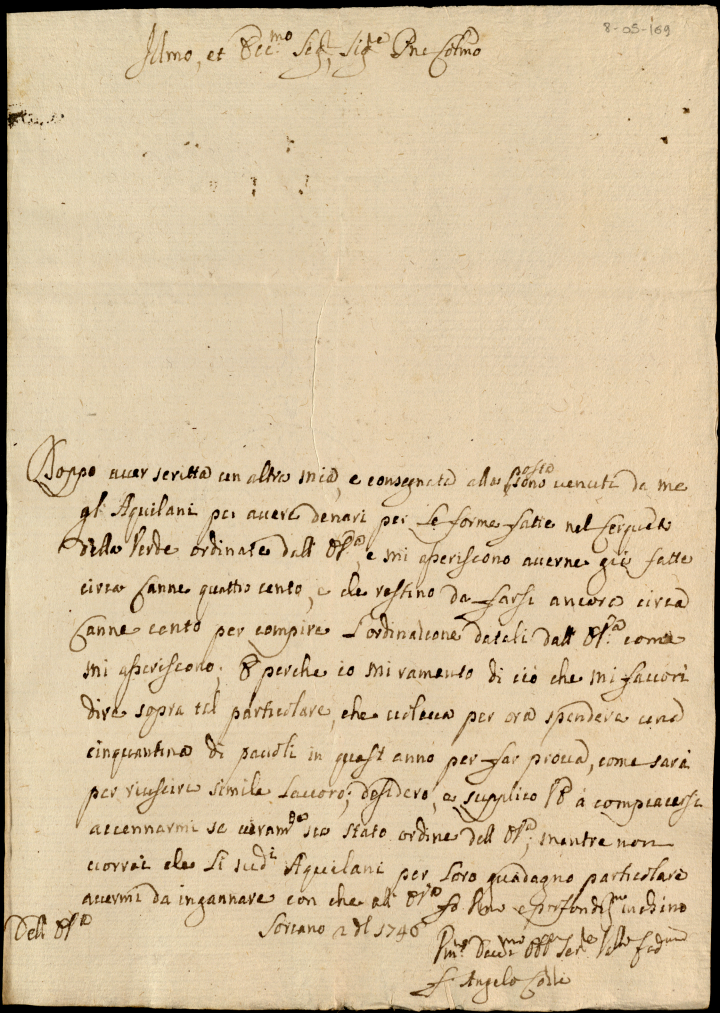 8-05-169
Illmo, et Ecc.mo Sig.r, Sig.re Pne Colmo
Doppo aver scritta un altra mia, e consegnata alla Posta sono venuti da me
gl'Aquilani per avere denari per le forme fatte nel Cerqueto
della Verde ordinate dall' , e mi asseriscono averne già fatte
circa Canne quattro cento, e che restino da farsi ancora circa
Canne cento per compire l'ordinazione datali dall' come
mi asseriscono; E perche io mi ramento di ciò che mi favorì
dire sopra tal particolare, che voleva per ora spendere una
cinquantina di paoli in quest'anno per far prova, come sarà
per riuscire simile lavoro; desidero, e supplico à compiacersi
accennarmi se veram.te sia stato ordine dell' ; mentre non
vorrei che li sud.i Aquilani per loro guadagno particolare
avermi da ingannare con che all' fò e profondis.mo inchino
Dell'
Soriano 2 1746
Dev.mo Obb. Ser.re
Angelo